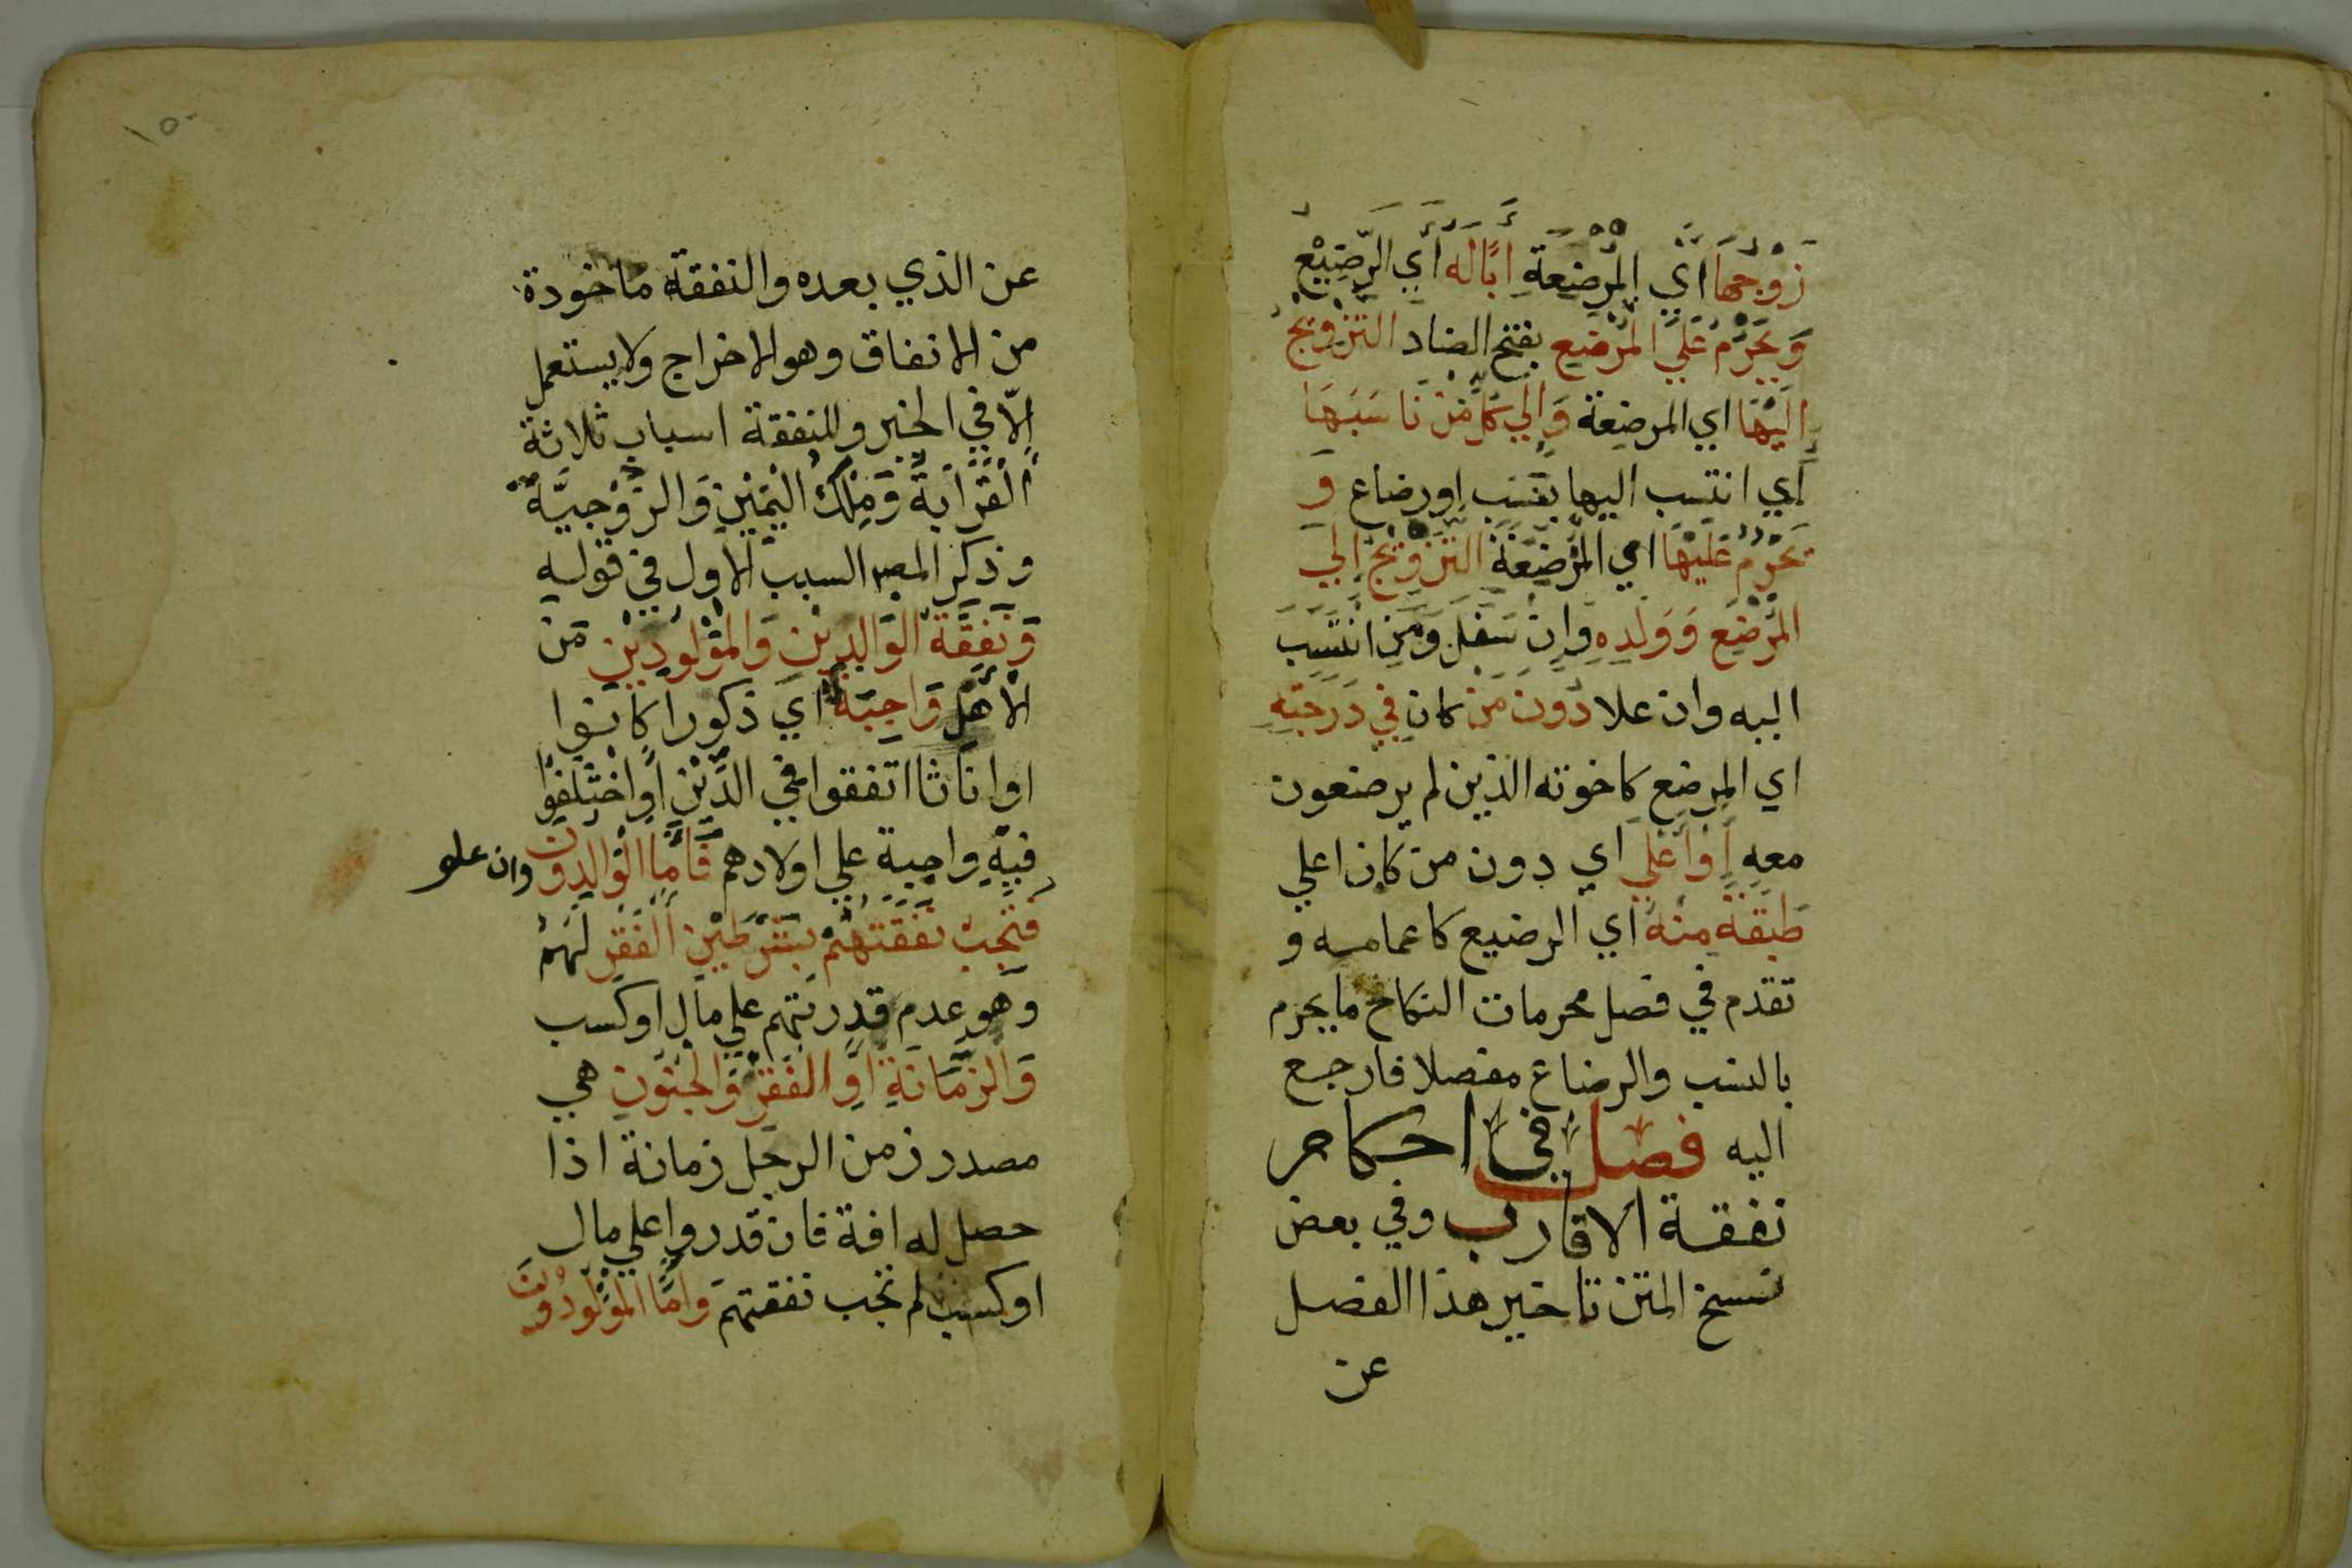 زَوْجُهَا اَيْ المُرْضِعَةِ اَبًا لَهُ اَي الرَّضِيْعْ
وَيَحْرُمُ عَلَي المُرْضَعِ بفتح الضاد التزْوِيْجُ
اِلَيْهَا اي المرضعة وَاِلي كُلِّ مَنْ نَاسَبَهَا
اَي انتسب اليها بنسب او رضاع وَ
يَحْرُمُ عَلَيْهَا اي المُرْضِعَةِ التَزْوِيْجُ اِلَي
المُرْضَعِ وَوَلَدِهِ وَاِنْ سَفَلَ وَمَنِ انْتَسَبَ
اليه وان علا دُوْنَ مَنْ كانَ فِي دَرَجَتِهِ
اي المرضع كاخوته الذين لم يرضعون
معه اَوْ اَعْلَي اي دون من كان اعلي
طَبَقَةً مِنْهُ اي الرضيع كاعمامه و
تقدم في فصل محرمات النكاح ما يحرم
بالنسب والرضاع مفصلا فارجع
اليه فصل في احكام
نفقة الاقارب وفي بعض
نسخ المتن تاخير هذا الفصل
عن
١٥٠
عن الذي بعده والنفقة ماخودة
من الانفاق وهو الاخراج ولا يستعمل
الّا في الخير وللنفقة اسباب ثلاثة
اَلْقَرَابَةُ وَمِلْكُ الْيَمِيْنِ وَالزَّوْجِيَّةُ
وذكر المص السبب الاول في قوله
وَنَفَقَةُ الوَالِدِيْنَ وَالمَوْلُودِيْنَ مَنَ
الاَهْلِ وَاجِبَةٌ اَيْ ذكورا كانوا
او اناثا اتفقوا في الدِّيْنِ اَوِ اخْتَلَفُوْا
فيه واجبة علي اولادهم فَاَمَّا الْوَالِدُوْنَ وان علو
فَتَجِبُ نَفَقَتُهُمْ بِشَرْطَيْنِ اَلْفَقْرِ لَهُمْ
وهو عدم قدرتهم علي مال او كسب
وَالزَّمَانَةِ اَوِ الفَقْرِ وَالْجُنُونِ هي
مصدر زمن الرجل زمانة اذا
حصل له افة فان قدروا علي مال
او كسب لم تجب نفقتهم وَاَمَّا المَوْلُودُوْنَ